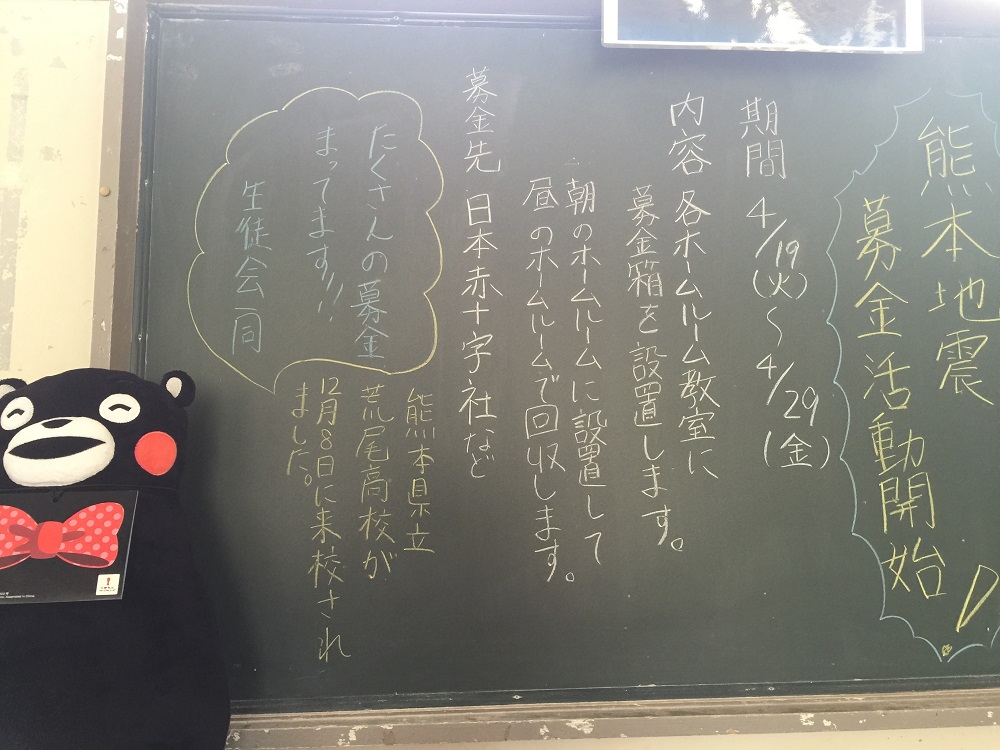 熊本地震
募金活動開始!
期間 4/19(火)〜4/29(金)
内容 各ホームルーム教室に
募金箱を設置します。
朝のホームルームに設置して
昼のホームルームで回収します。
募金先 日本赤十字社など
たくさんの募金
まってます!!
生徒会一同
熊本県立
荒尾高校が
12月8日に来校され
ました。